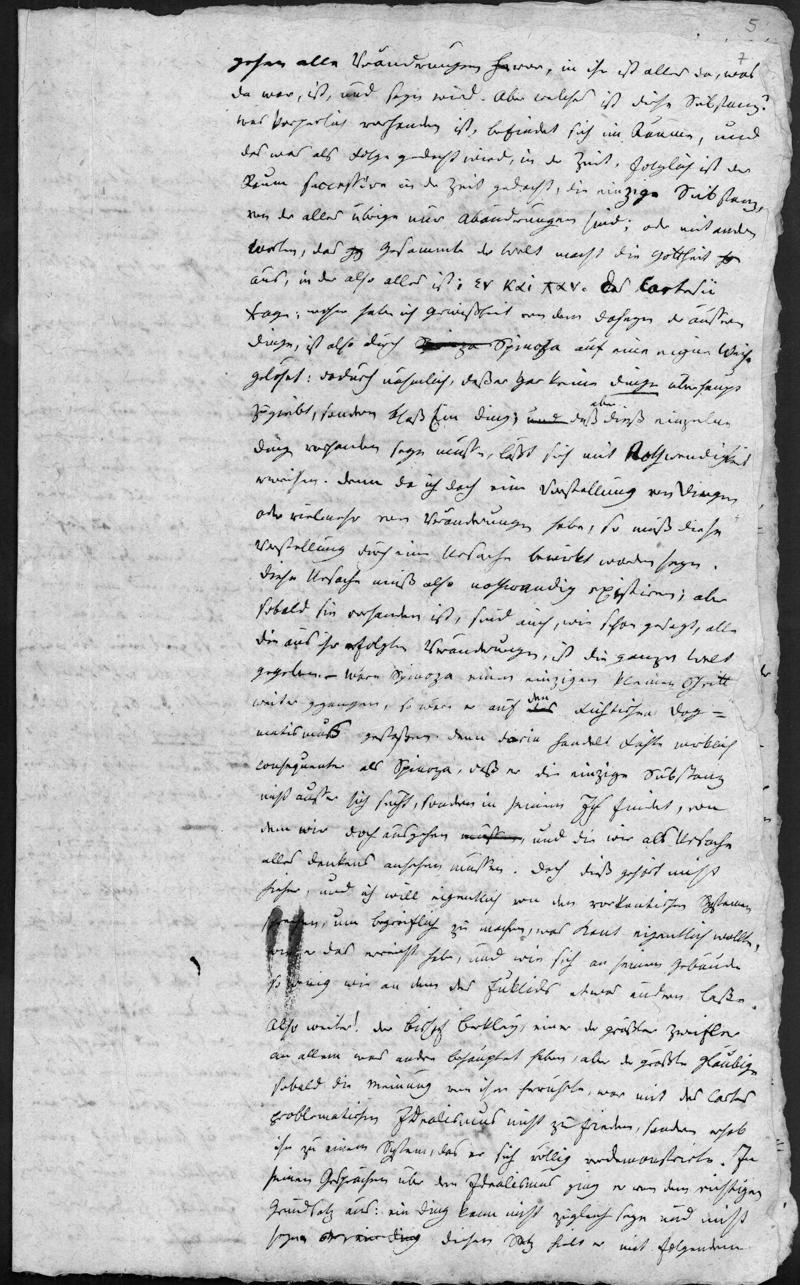 5
7
gehen alle Veränderungen hervor, in ihr ist alles da, was
da war, ist, und seyn wird. Aber welches ist diese Substanz?
was körperlich vorhanden ist, befindet sich im Raume, und
das was als Folge gedacht wird, in der Zeit, folglich ist der
Raum successive in der Zeit gedacht, die einzige Substanz,
von der alles übrige nur Abänderungen sind; oder mit andern
Worten, das Gesammte der Welt macht die Gottheit
aus, in der also alles ist; εν και παν. Des Cartesii
Frage; woher habe ich Gewißheit von dem Daseyn der äussern
Dinge, ist also durch Spinoza Spinoza auf eine eigne Weise
gelöset: dadurch nähmlich, daß er gar keine Dinge überhaupt
zugiebt, sondern bloß Ein Ding; und daß aber dieß einzelne
Ding vorhanden seyn müsse, läßt sich mit Nothwendigkeit
erweisen. denn da ich doch eine Vorstellung von Dingen
oder vielmehr von Veränderungen habe, so muß diese
Vorstellung durch eine Ursache bewirkt worden seyn.
Diese Ursache muß also nothwendig existiren; aber
sobald sie vorhanden ist, sind auch, wie schon gesagt, alle
die aus ihr erfolgten Veränderungen, ist die ganze Welt
gegeben. – Wäre Spinoza einen einzigen kleinen Schritt
weiter gegangen, so wäre er auf den Fichtischen Dog=
matismus gestoßen. denn darin handelt Fichte wirklich
consequenter als Spinoza, daß er die einzige Substanz
nicht ausser sich sucht, sondern in seinem Ich findet, von
dem wir doch ausgehen müssen, und die wir als Ursache
alles Denkens ansehen müssen. Doch dieß gehört nicht
hieher, und ich will eigentlich von den vorkantischen Systemen
sprechen, um begreiflich zu machen, was Kant eigentlich wollte,
wie er das erreicht habe, und wie sich an seinem Gebäude
so wenig wie an dem des Euklids etwas ändern lasse.
Also weiter! der Bischof Berkley, einer der größten Zweifler
an allem was andre behauptet haben, aber der größte Gläubige
sobald die Meinung von ihm herrührte, war mit des Cartes
problematischen Idealismus nicht zufrieden, sondern erhob
ihn zu einem System, das er sich völlig vordemonstrirte. In
seinen Gesprächen über den Idealismus ging er von dem richtigen
Grundsatz aus: ein Ding kann nicht zugleich seyn und nicht
seyn diesen Satz hielt er mit folgendem